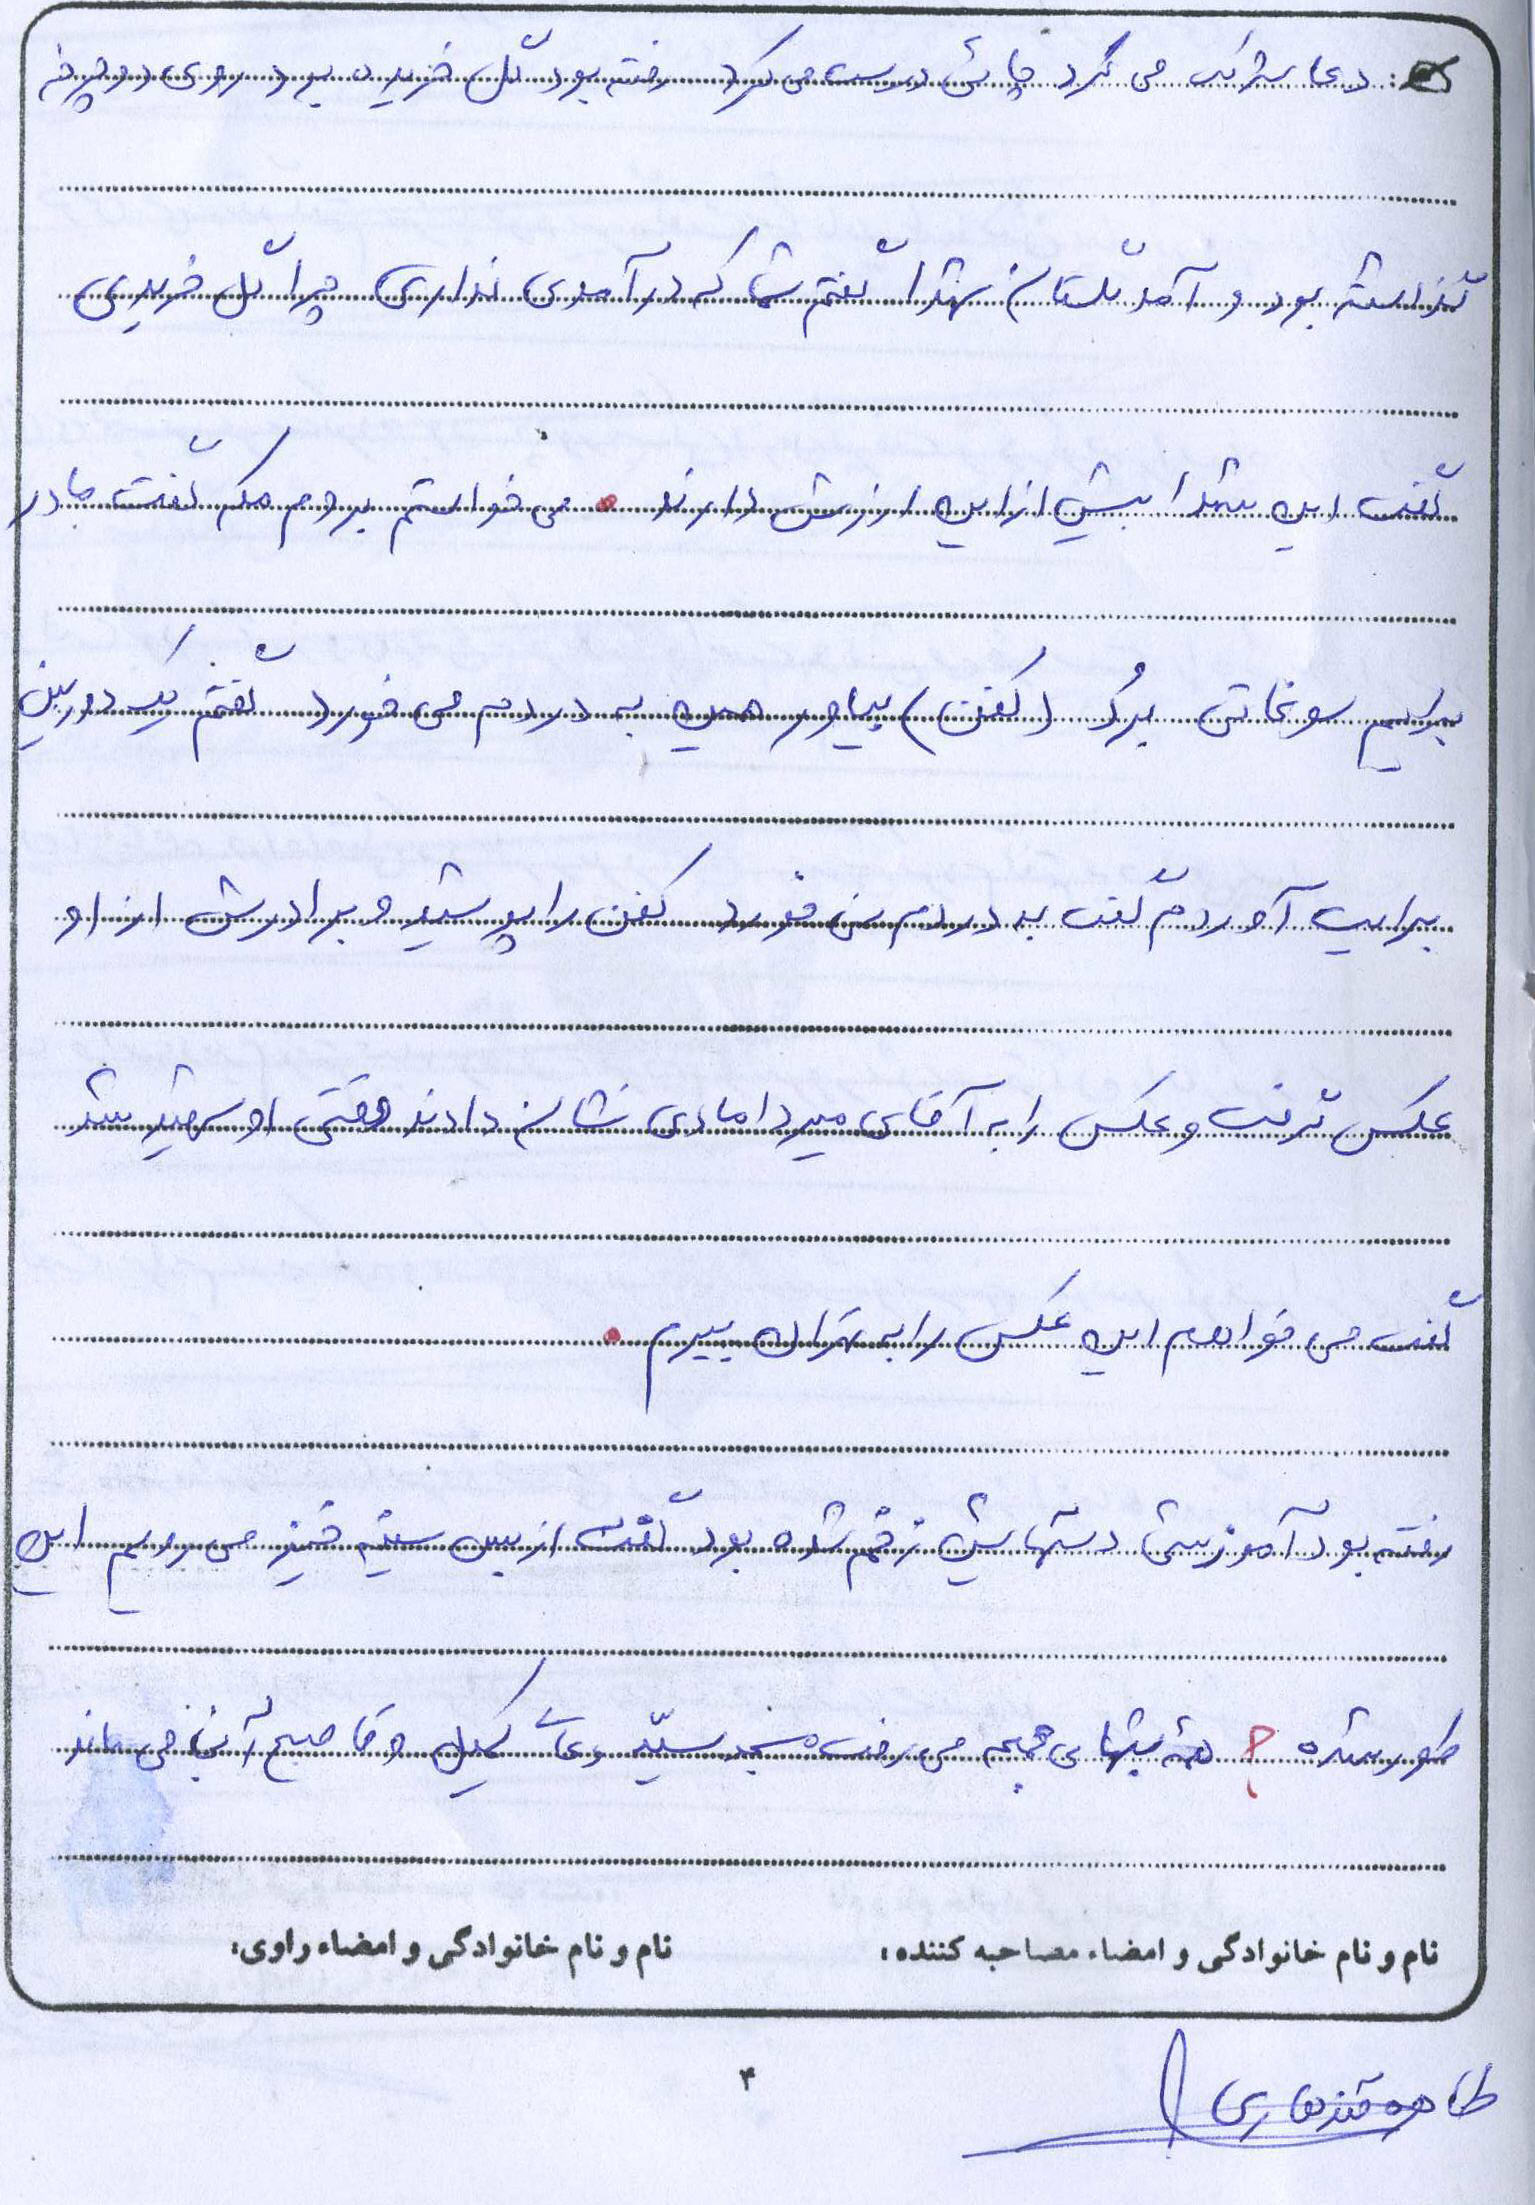 دعا شرکت می کرد چائی درست می کرد رفته بود گل خریده بود روی دوچرخه
گذاشته بود و آمد گلستان شهدا گفتم شما که درآمدی نداری چرا گل خریدی
گفت این شهدا بیش از این ارزش دارند . می خواستم بروم مکه گفت مادر
برایم سوغاتی بُرد (کفن) بیاور همین به دردم می خورد گفتم یک دوربین
برایت آوردم گفت به دردم نمی خورد کفن را پوشید و برادرش از او
عکس گرفت و عکس را به آقای میردامادی نشان دادند وقتی او شهید شد
گفت می خواهم این عکس را به تهران ببرم .
رفته بود آموزشی دستهایش زخم شده بود گفت از بس سینه خیز می رویم این
طور شده همه شبهای جمعه می رفت مسجد سیّد دعای کمیل و تا صبح آنجا می ماند
نام و نام خانوادگی و امضاء مصاحبه کننده: نام و نام خانوادگی و امضاء راوی:
۴
طاهره قندهاری